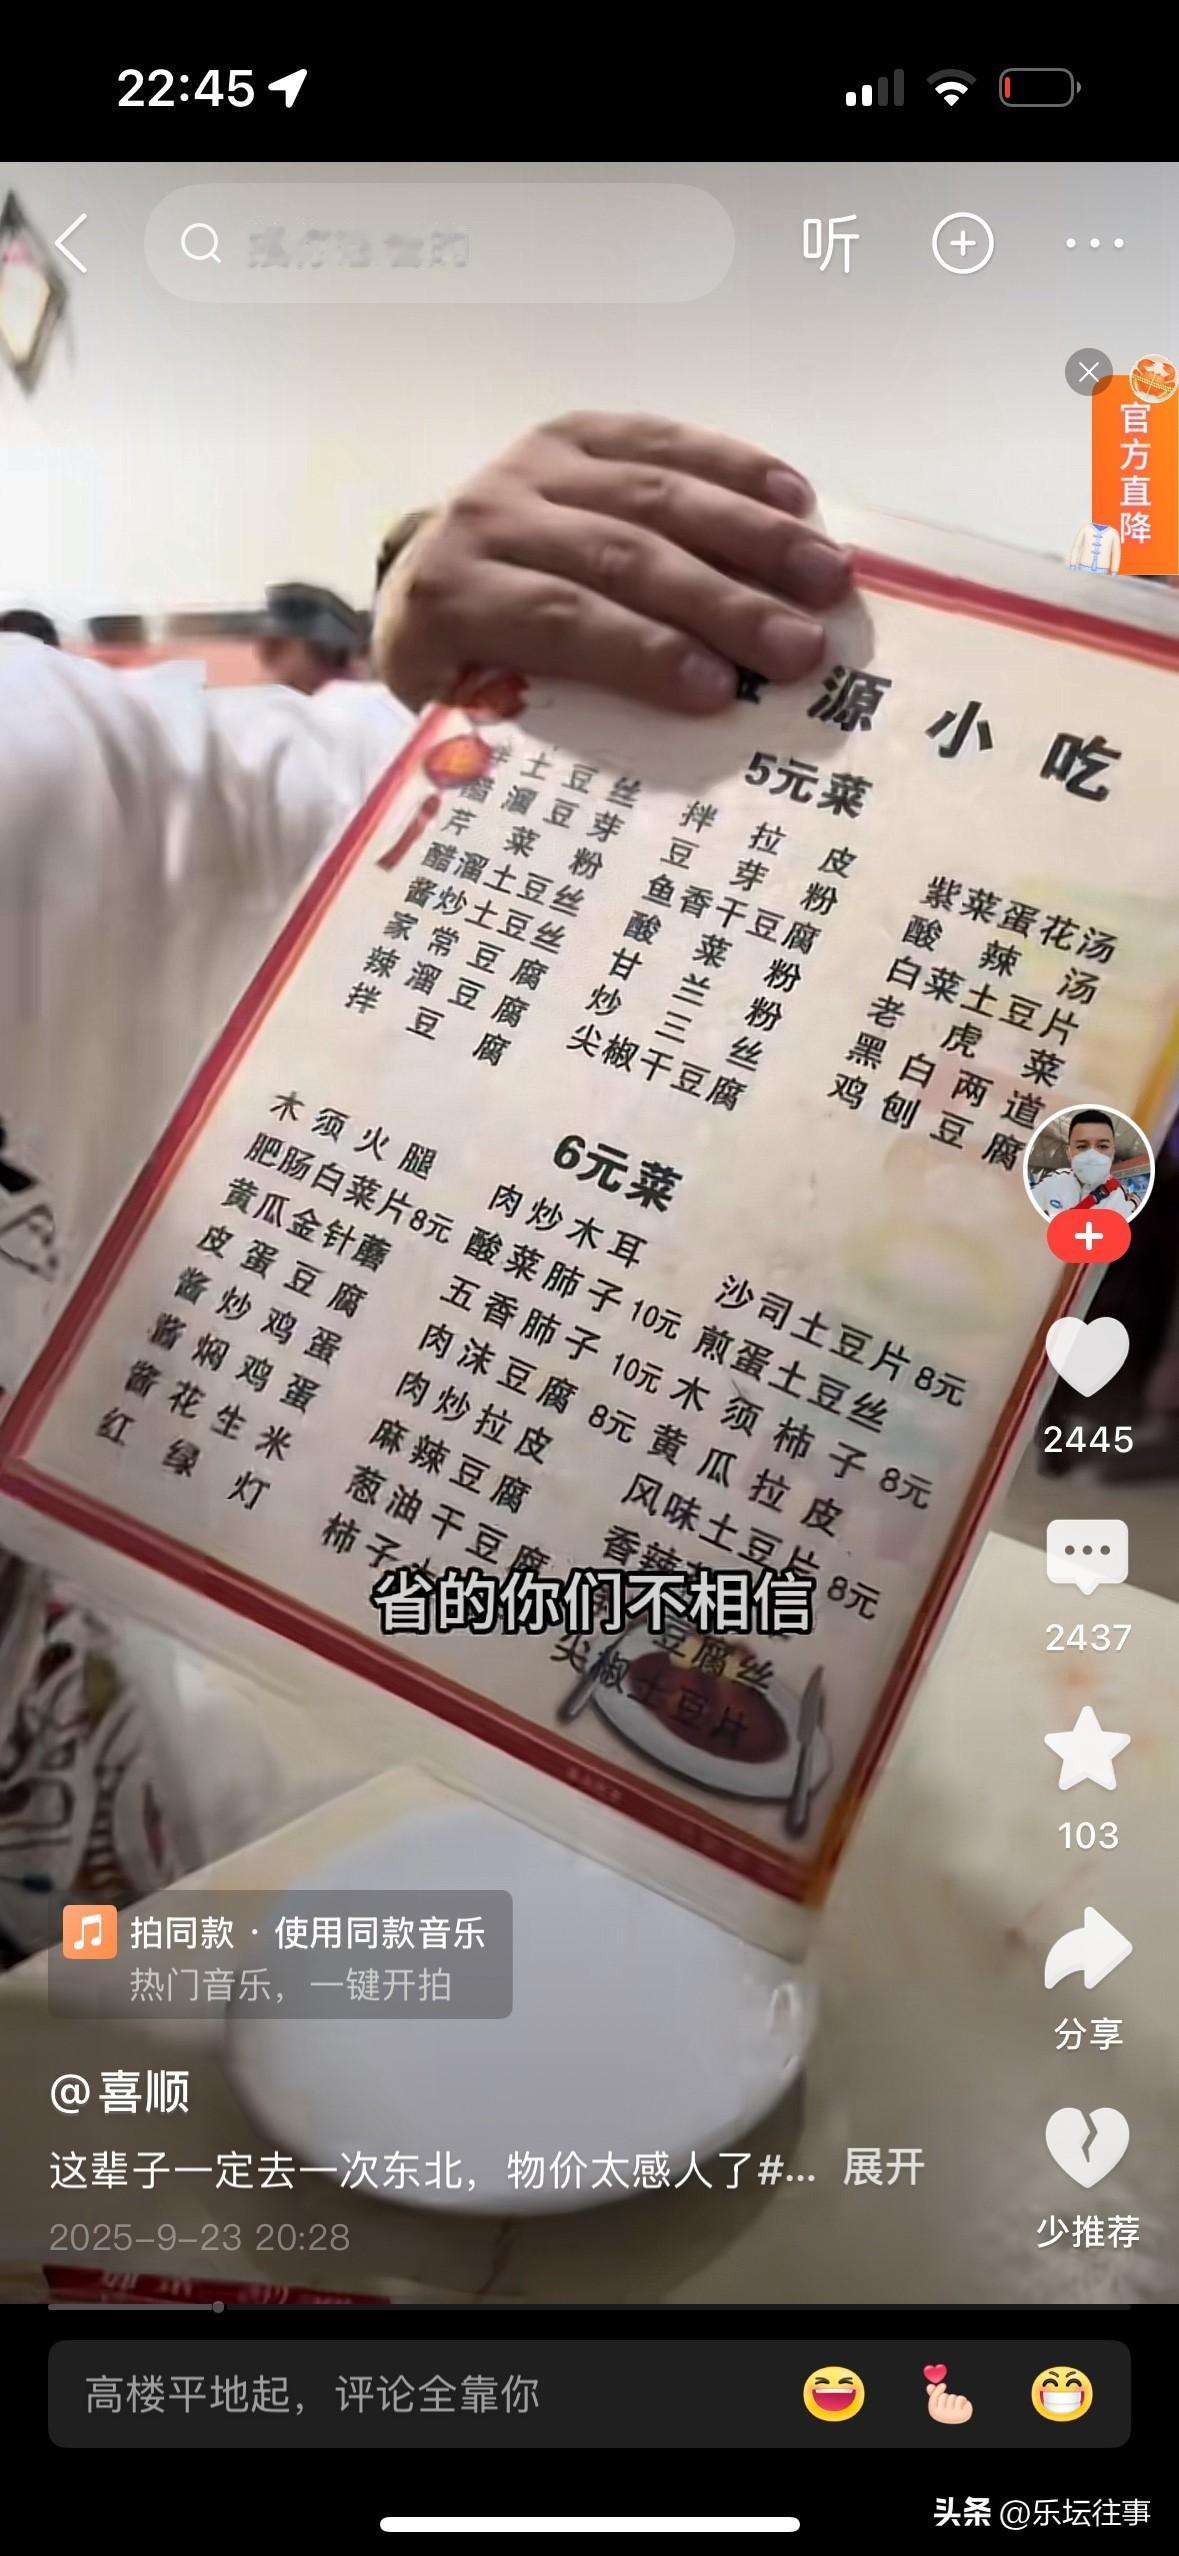 22:45
听
官方直降
源小吃
5元菜
拌土豆丝
醋溜豆芽
芹菜粉
醋溜土豆丝
酱炒土豆丝
家常豆腐
辣溜豆腐
拌豆腐
拌拉皮
豆芽粉
鱼香干豆腐
酸菜粉
甘兰粉
炒三丝
尖椒干豆腐
紫菜蛋花汤
酸辣汤
白菜土豆片
老虎菜
黑白两道
鸡刨豆腐
6元菜
木须火腿
肥肠白菜片8元
黄瓜金针蘑
皮蛋豆腐
酱炒鸡蛋
酱焖鸡蛋
酱花生米
红绿灯
肉炒木耳
酸菜肺子10元
五香肺子10元
肉沫豆腐8元
肉炒拉皮
麻辣豆腐
葱油干豆腐
柿子
沙司土豆片8元
煎蛋土豆丝
木须柿子8元
黄瓜拉皮
风味土豆片8元
香辣
豆腐丝
尖椒土豆片
省的你们不相信
2445
2437
103
分享
少推荐
拍同款 · 使用同款音乐
热门音乐，一键开拍
@喜顺
这辈子一定去一次东北，物价太感人了#... 展开
2025-9-23 20:28
高楼平地起，评论全靠你
头条 @乐坛往事